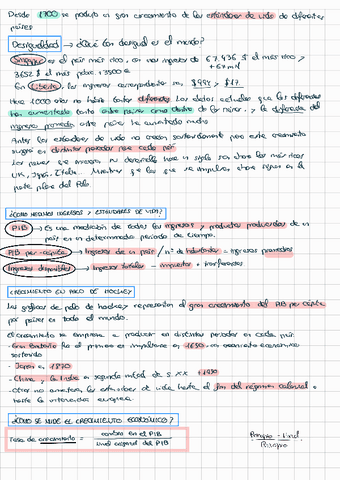 Desde 1700 se produjo un gran crecimiento de los estándares de vida de diferentes
países
Desigualdad → ¿Cómo de desigual es el mundo?
Singapur es el país más rico, con unos ingresos de 67.436 $ el más rico y
3652 $ el más pobre
En Liberia, los ingresos correspondientes son, $994 y $17
Hace 1000 años no había tantas diferencias. Los datos estudiados que las diferencias
han aumentado tanto entre países como dentro de los países, y la diferencia del
ingreso promedio entre países ha aumentado mucho
Antes los estándares de vida no crecían sostenidamente pero este crecimiento
surgió en distintos periodos para cada país
UK, Japón, Italia. Mientras que los que se
pobre del PIB
¿CÓMO MEDIMOS INGRESOS Y ESTÁNDARES DE VIDA?
PIB → Es una medición de todos los ingresos y productos producidos de un
país en un determinado periodo de tiempo.
PIB per-cápita → Ingresos de un país / nº de habitantes = ingresos promedios
Ingresos disponibles → Ingresos totales - impuestos + transferencias
CRECIMIENTO EN PALO DE HOCKEY
Las gráficas de palo de hockey representan el gran crecimiento del PIB per cápita
por países en todo el mundo.
El crecimiento se empieza a producir en distintos periodos en cada país:
- Gran Bretaña fue el primero en impulsarse en 1650, con crecimiento económico
sostenido
- Japón en 1870
- China y la India en segunda mitad de s. XX
- Otros no aumentan los estándares de vida hasta el fin del régimen colonial o
hasta la interacción europea
¿CÓMO SE MIDE EL CRECIMIENTO ECONÓMICO?
Tasa de crecimiento = cambio en el PIB
nivel original del PIB